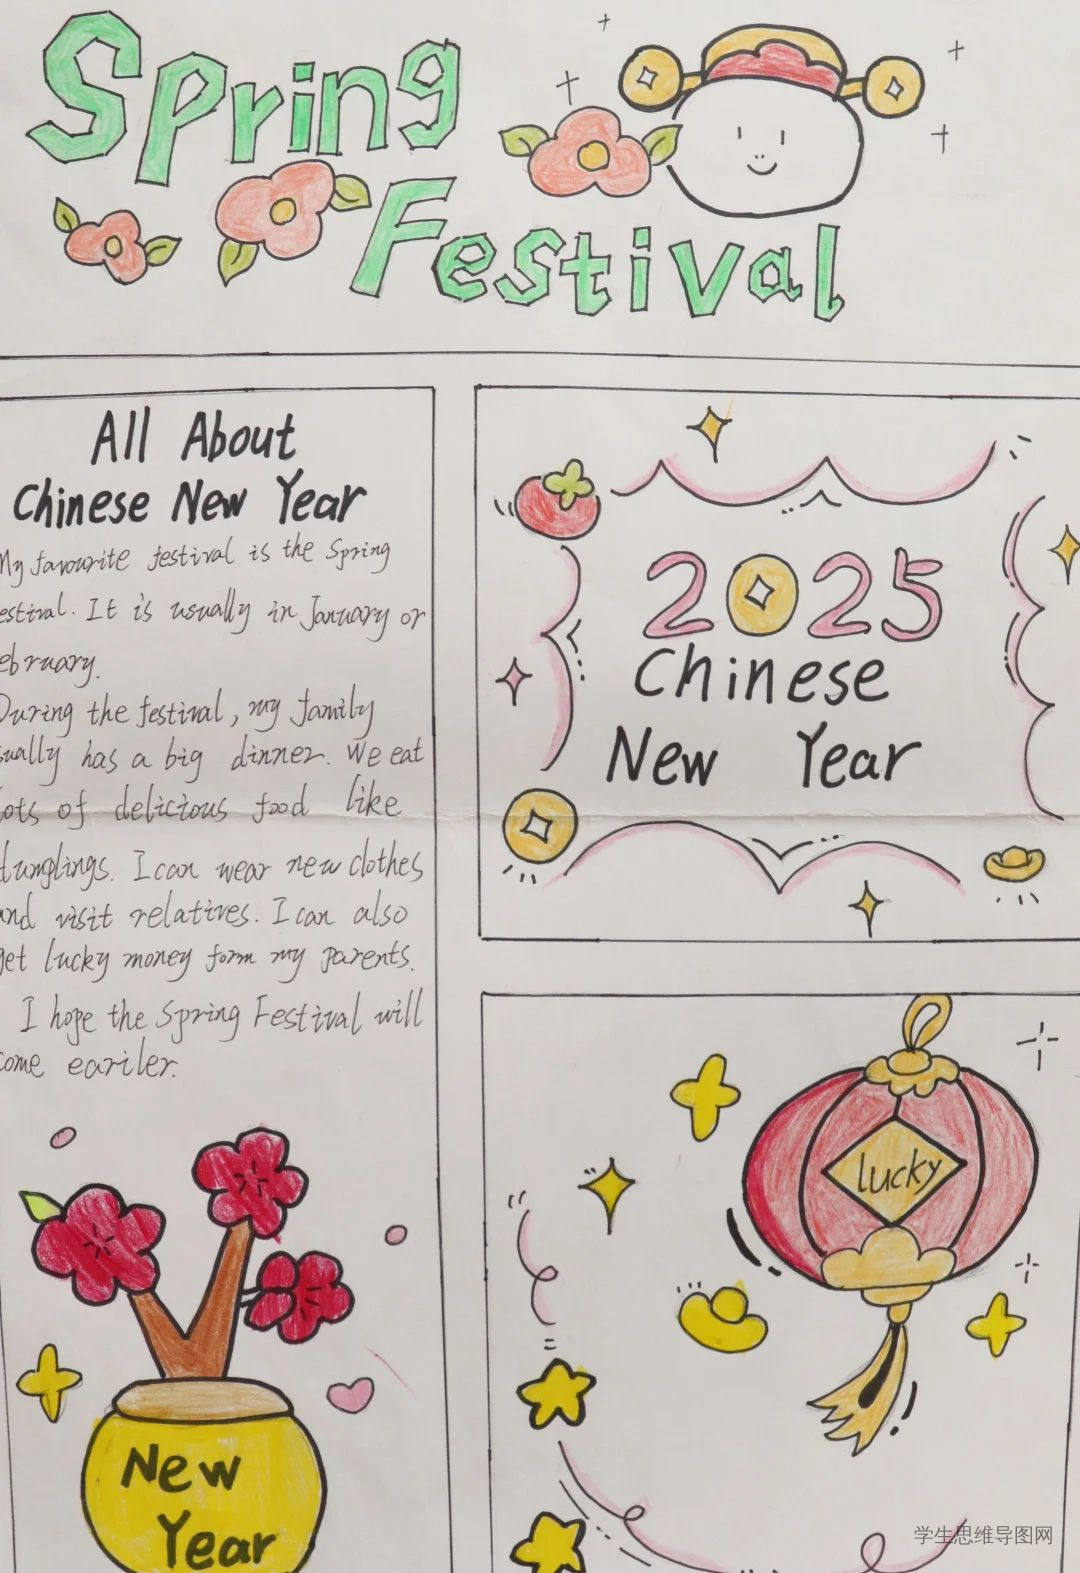 Spring
Festival
All About
Chinese New Year
My favourite festival is the Spring
estival. It is usually in January or
ebruary.
During the festival, my family
sually has a big dinner. We eat
lots of delicious food like
dumplings. I can wear new clothes
and visit relatives. I can also
get lucky money form my parents.
I hope the Spring Festival will
come eariler.
2025
Chinese
New Year
lucky
New
Year
学生思维导图网